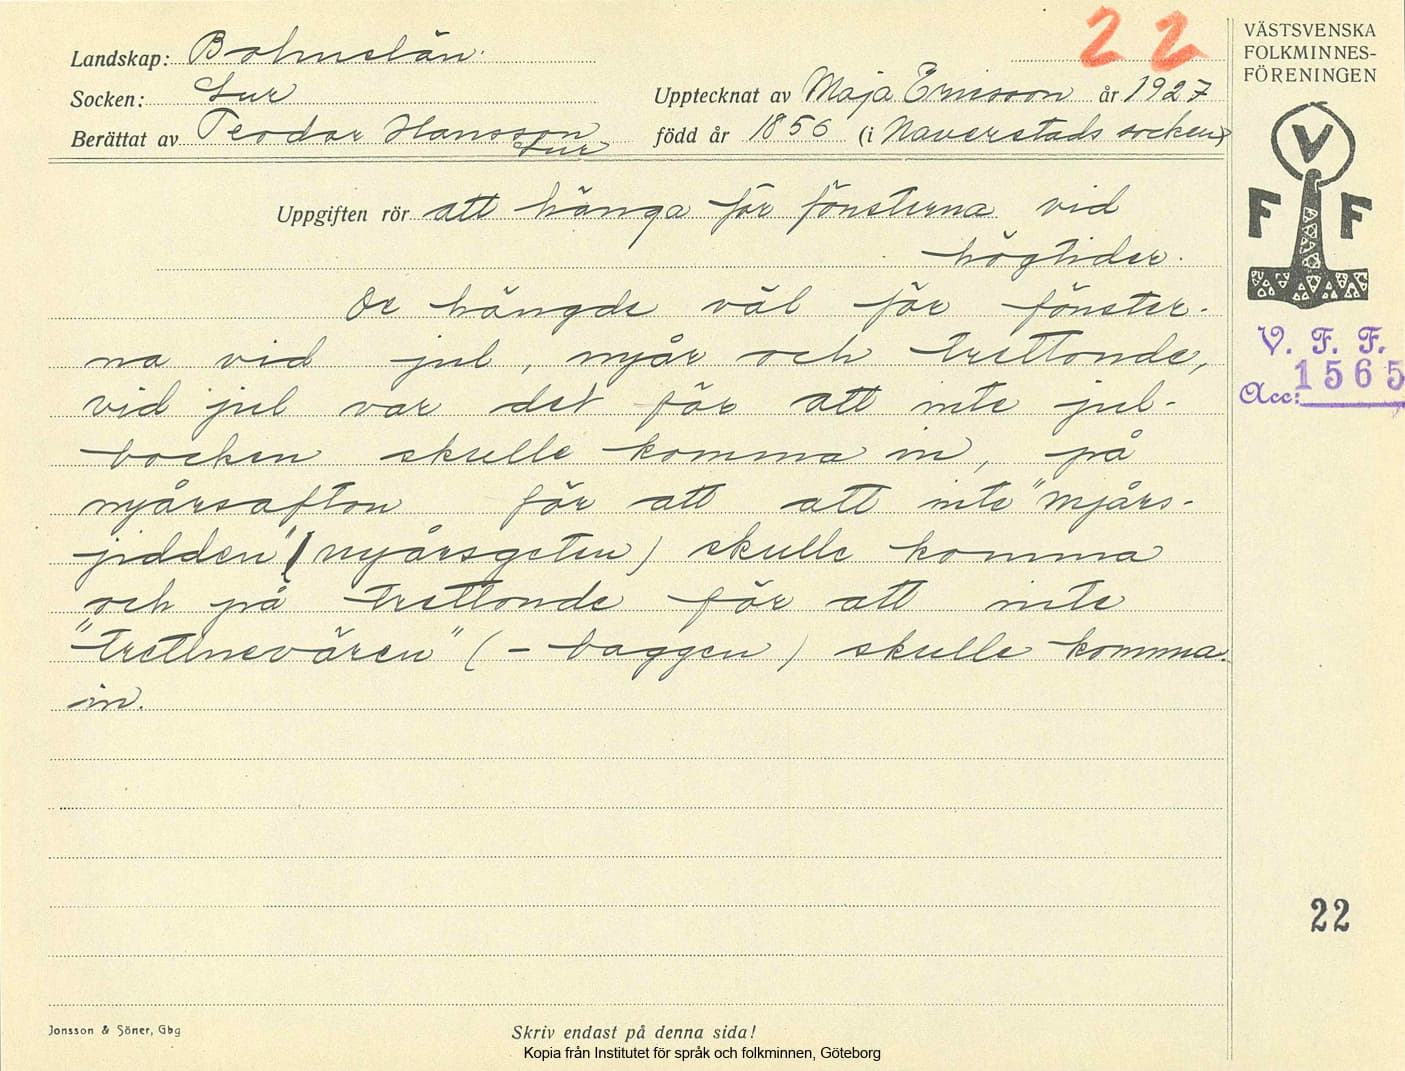 22
VÄSTSVENSKA
FOLKMINNES-
FÖRENINGEN
Landskap: Bohuslän.
Socken: Lur
Upptecknat av Maja Ericsson år 1927
Berättat av Teodor Hansson
Lur
född år 1856 (i Naverstads socken)
V
F F
Uppgiften rör att hänga för fönsterna vid
högtider.
De hängde väl för fönster-
na vid jul, nyår och trettonde,
vid jul var det för att inte jul-
bocken skulle komma in, på
nyårsafton för att att inte "mjårs-
jidden" (nyårsgeten) skulle komma
och på trettonde för att inte
"tretlnevären" (-baggen) skulle komma
in.
V. F. F.
Acc: 1565
22
Jonsson & Söner, Gbg
Skriv endast på denna sida!
Kopia från Institutet för språk och folkminnen, Göteborg